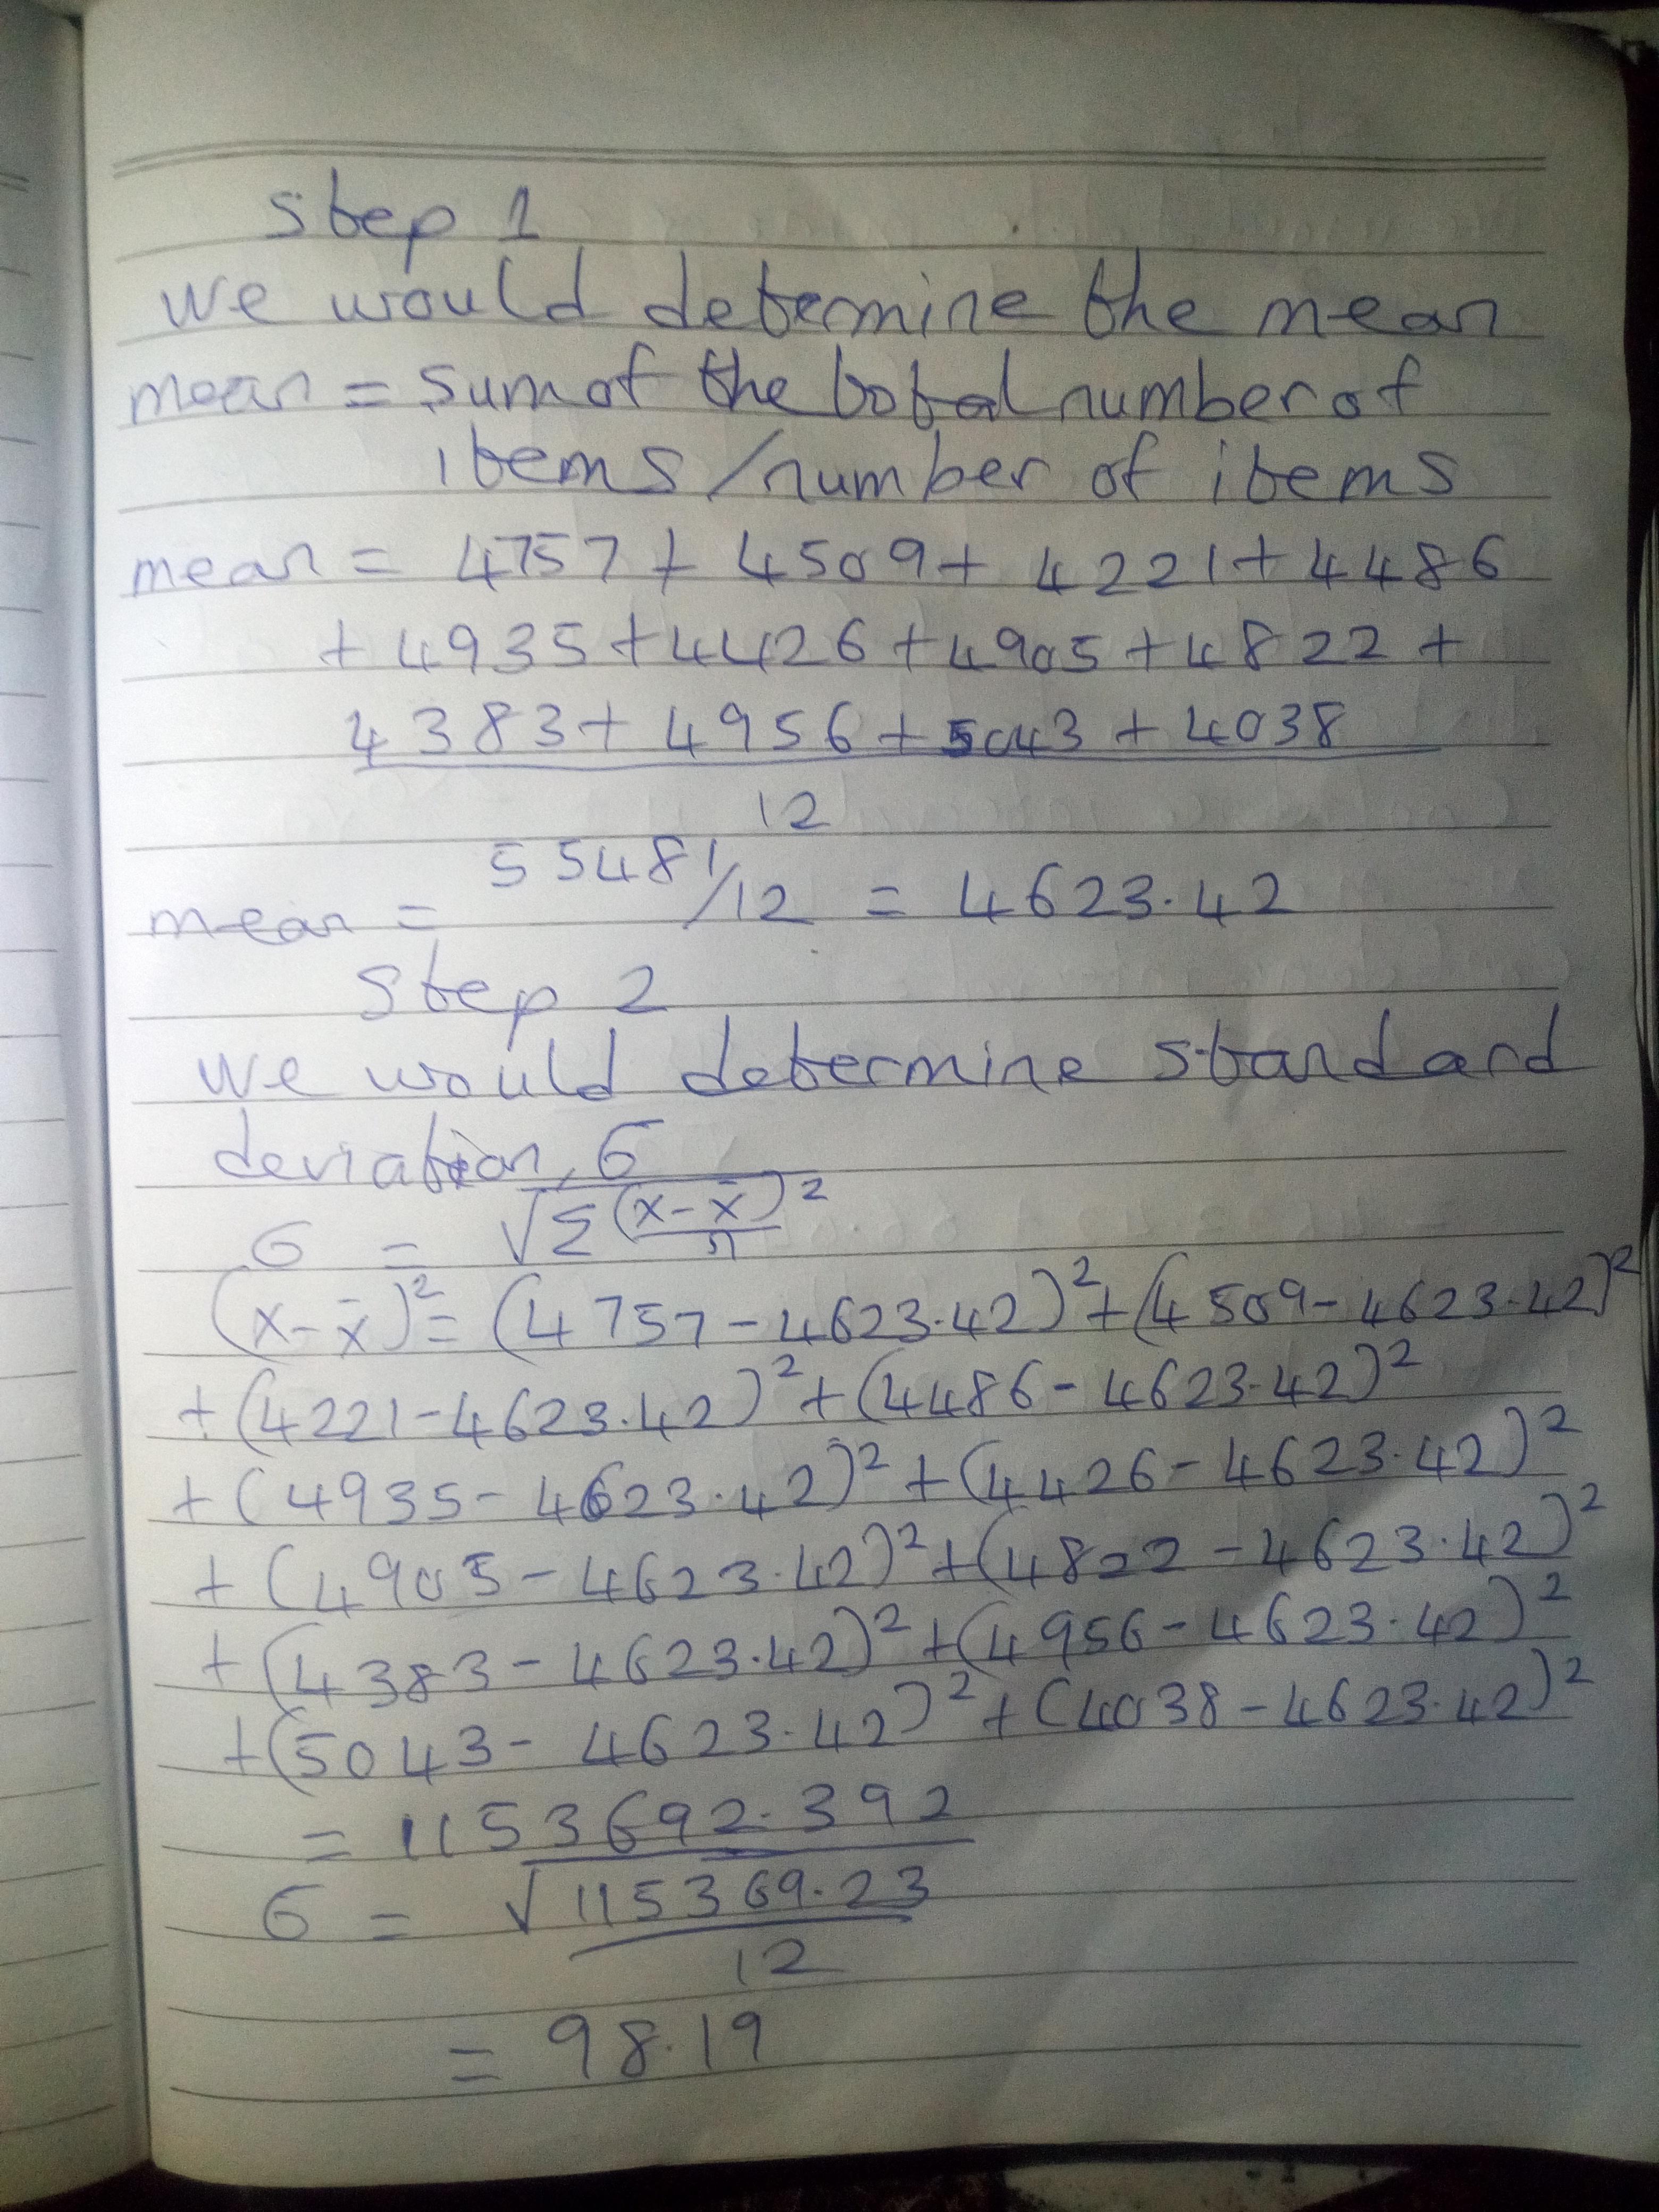 Step 1
We would determine the mean
mean = sum of the total number of
items / number of items
mean = 4757 + 4509 + 4221 + 4486
+ 4935 + 4426 + 4905 + 4822 +
4383 + 4956 + 5043 + 4038
12
mean = 55481/12 = 4623.42
Step 2
We would determine standard
deviation, σ
σ = √Σ(x - x̄)²/n
(x - x̄)² = (4757 - 4623.42)² + (4509 - 4623.42)²
+ (4221 - 4623.42)² + (4486 - 4623.42)²
+ (4935 - 4623.42)² + (4426 - 4623.42)²
+ (4905 - 4623.42)² + (4822 - 4623.42)²
+ (4383 - 4623.42)² + (4956 - 4623.42)²
+ (5043 - 4623.42)² + (4038 - 4623.42)²
= 1153692.392
σ = √115369.23
12
= 98.19